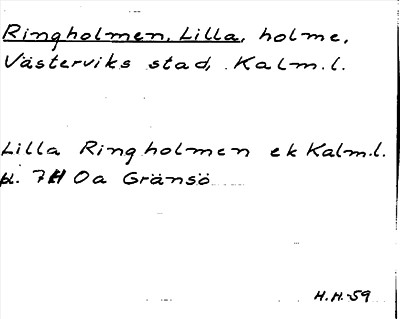 Ringholmen, Lilla, holme,
Västerviks stad, Kalm.l.
Lilla Ringholmen ek Kalm.l.
bl. 7H 0a Gränsö
H.H.-59